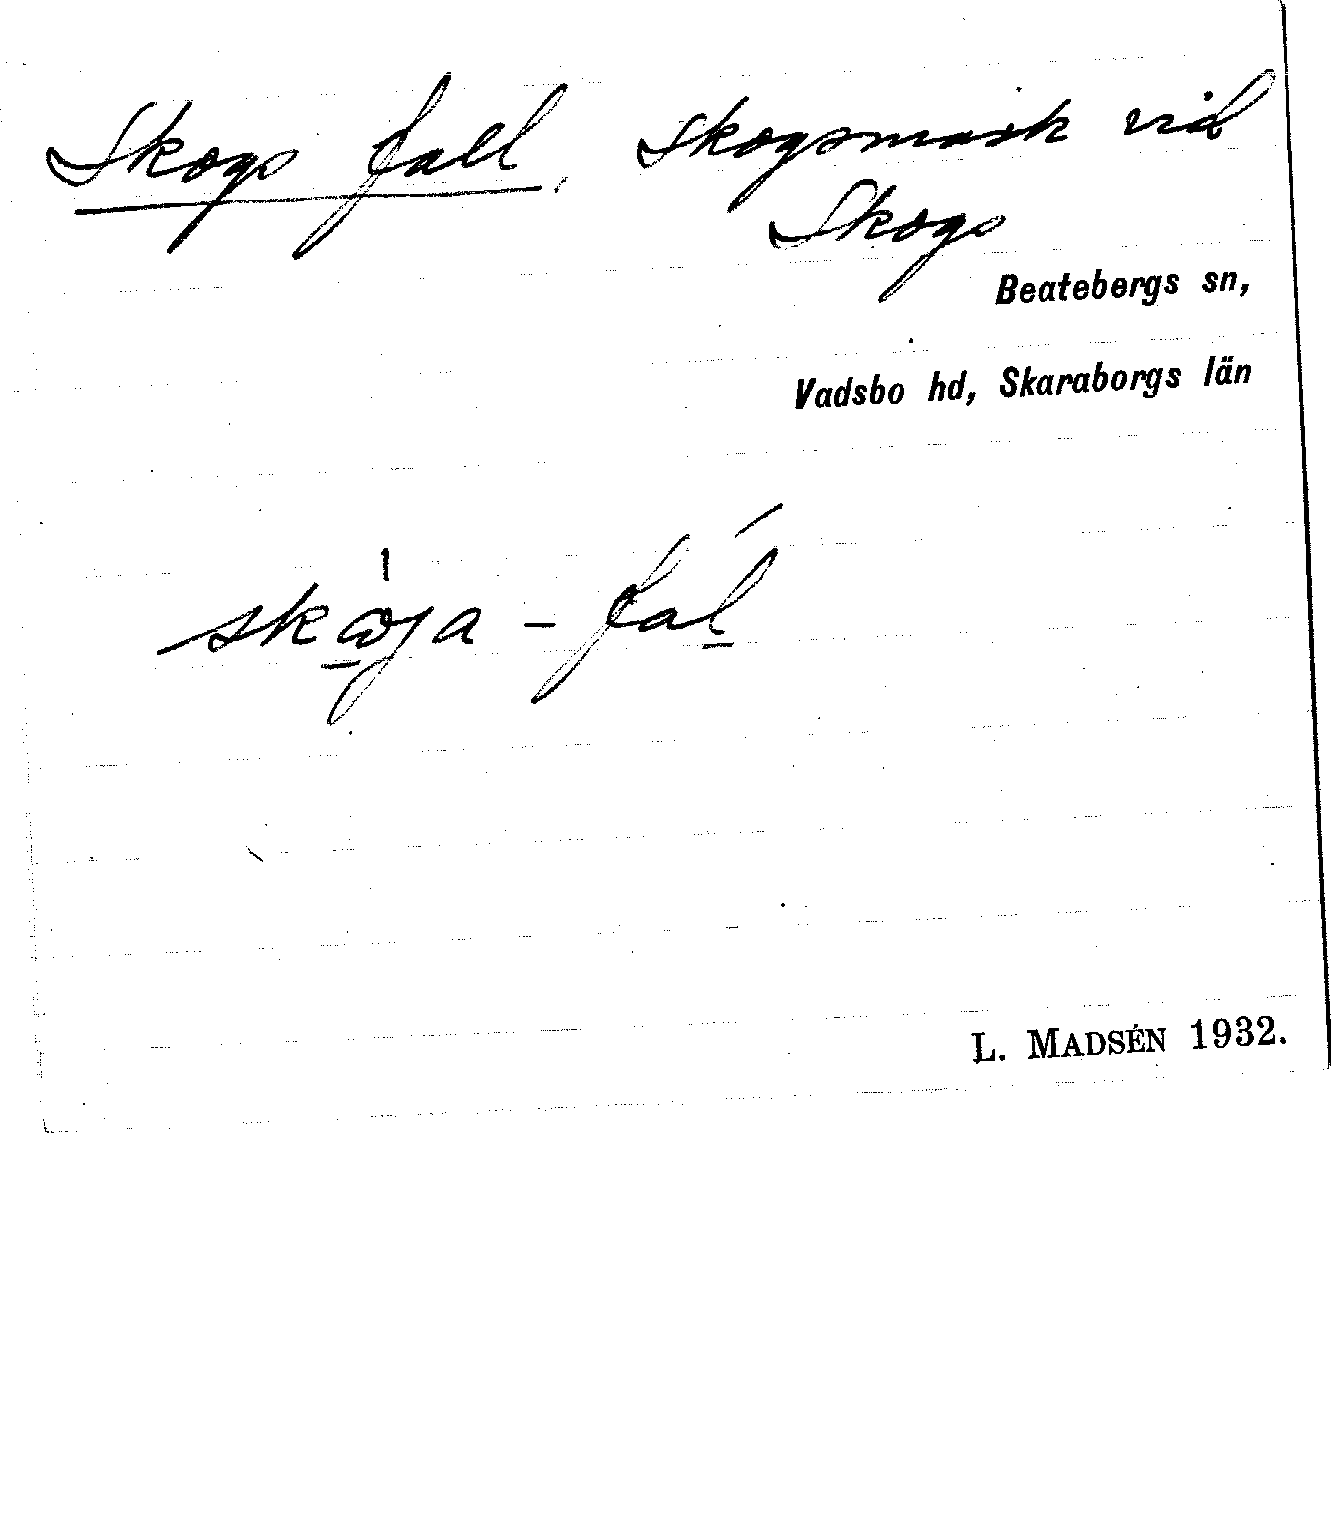 Skogs fall. Skogsmark vid
Skogs
Beatebergs sn,
Vadsbo hd, Skaraborgs län
L. MADSÉN 1932.